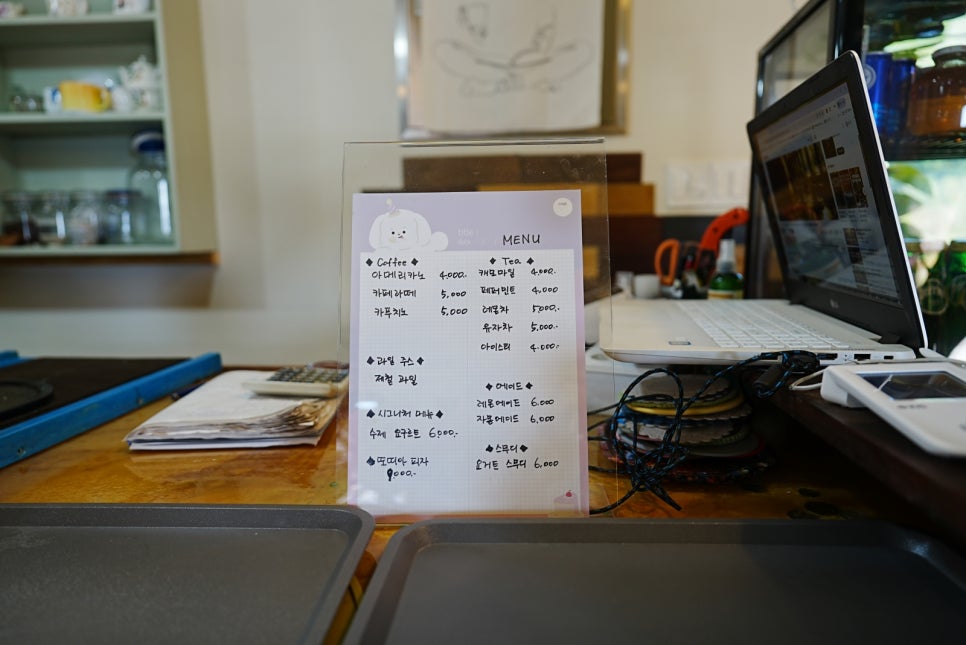 MENU
◆ Coffee ◆
아메리카노 4,000.-
카페라떼 5,000
카푸치노 5,000
◆ 과일 주스 ◆
제철 과일
◆ 시그니처 메뉴 ◆
수제 요구르트 6,000.-
◆ 또띠아 피자
000.-
◆ Tea ◆
캐모마일 4,000.-
페퍼민트 4,000
레몬차 5000.-
유자차 5,000.-
아이스티 4.000.-
◆ 에이드 ◆
레몬에이드 6.000
자몽에이드 6,000
◆ 스무디 ◆
요거트 스무디 6,000